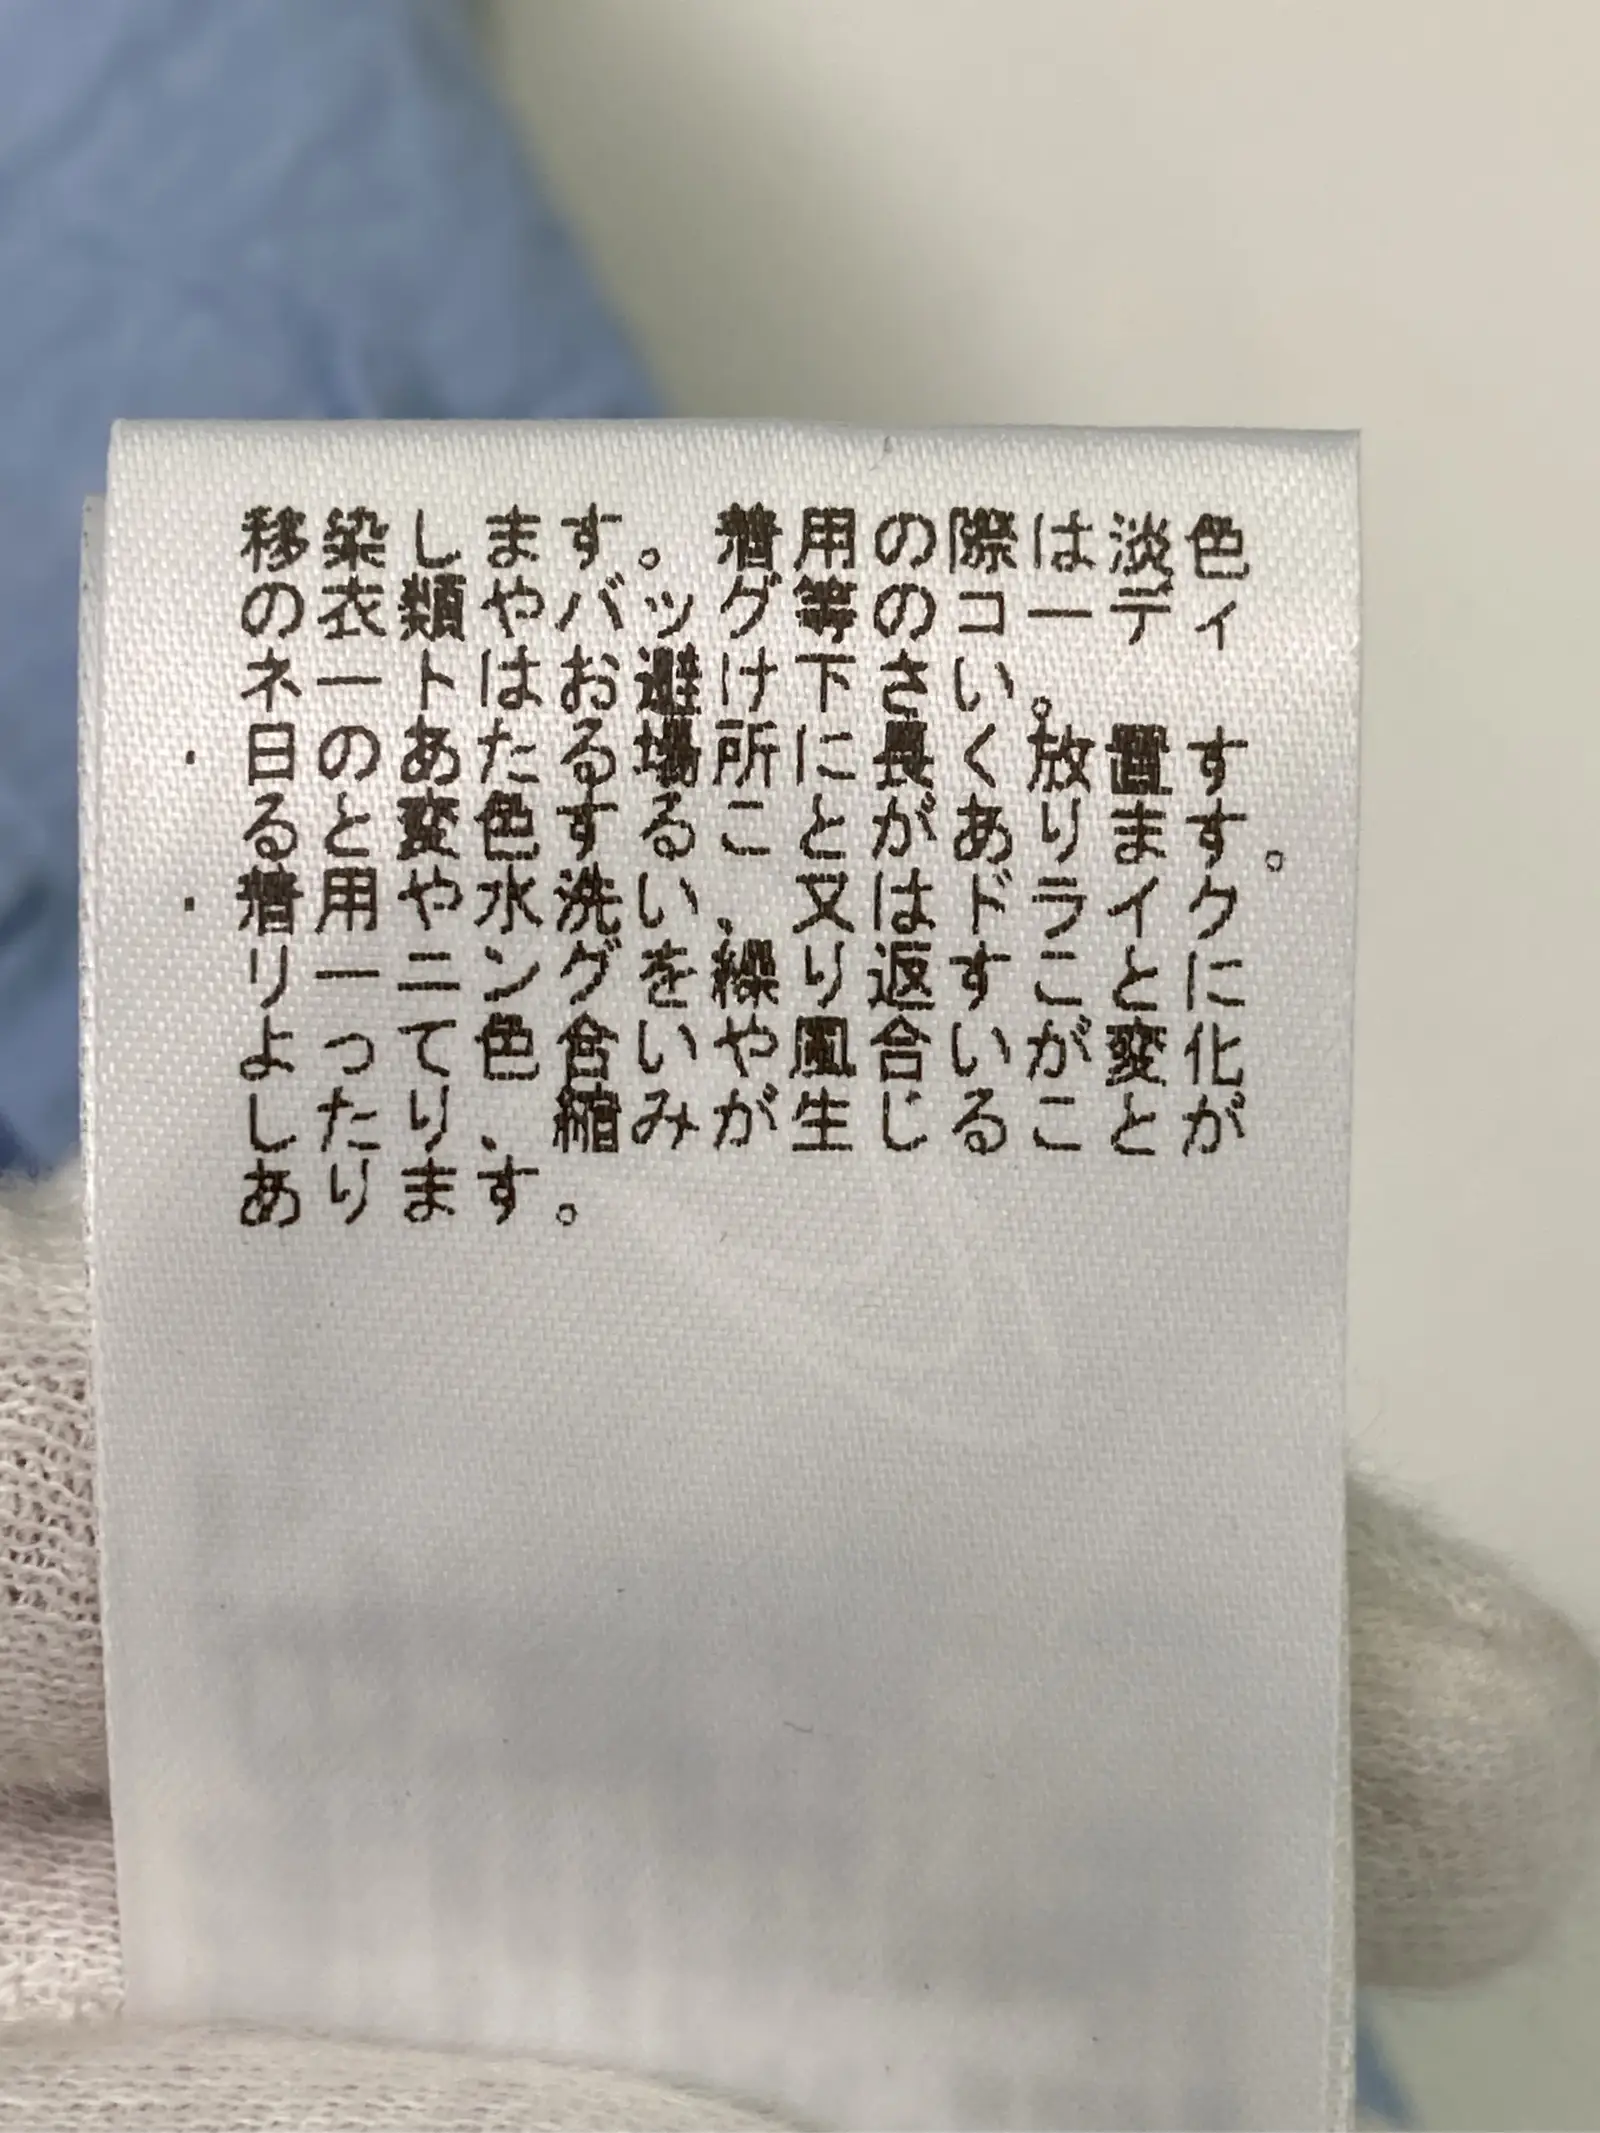 移染します。着用の際は淡色
の衣類やバッグ等のコーディ
ネートはお避け下さい。
・日のあたる場所に長く放置す
ると変色することがあります。
・着用や水洗い、又はドライク
リーニングを繰り返すことに
よって色合いや風合いが変化
したり、縮みが生じることが
あります。